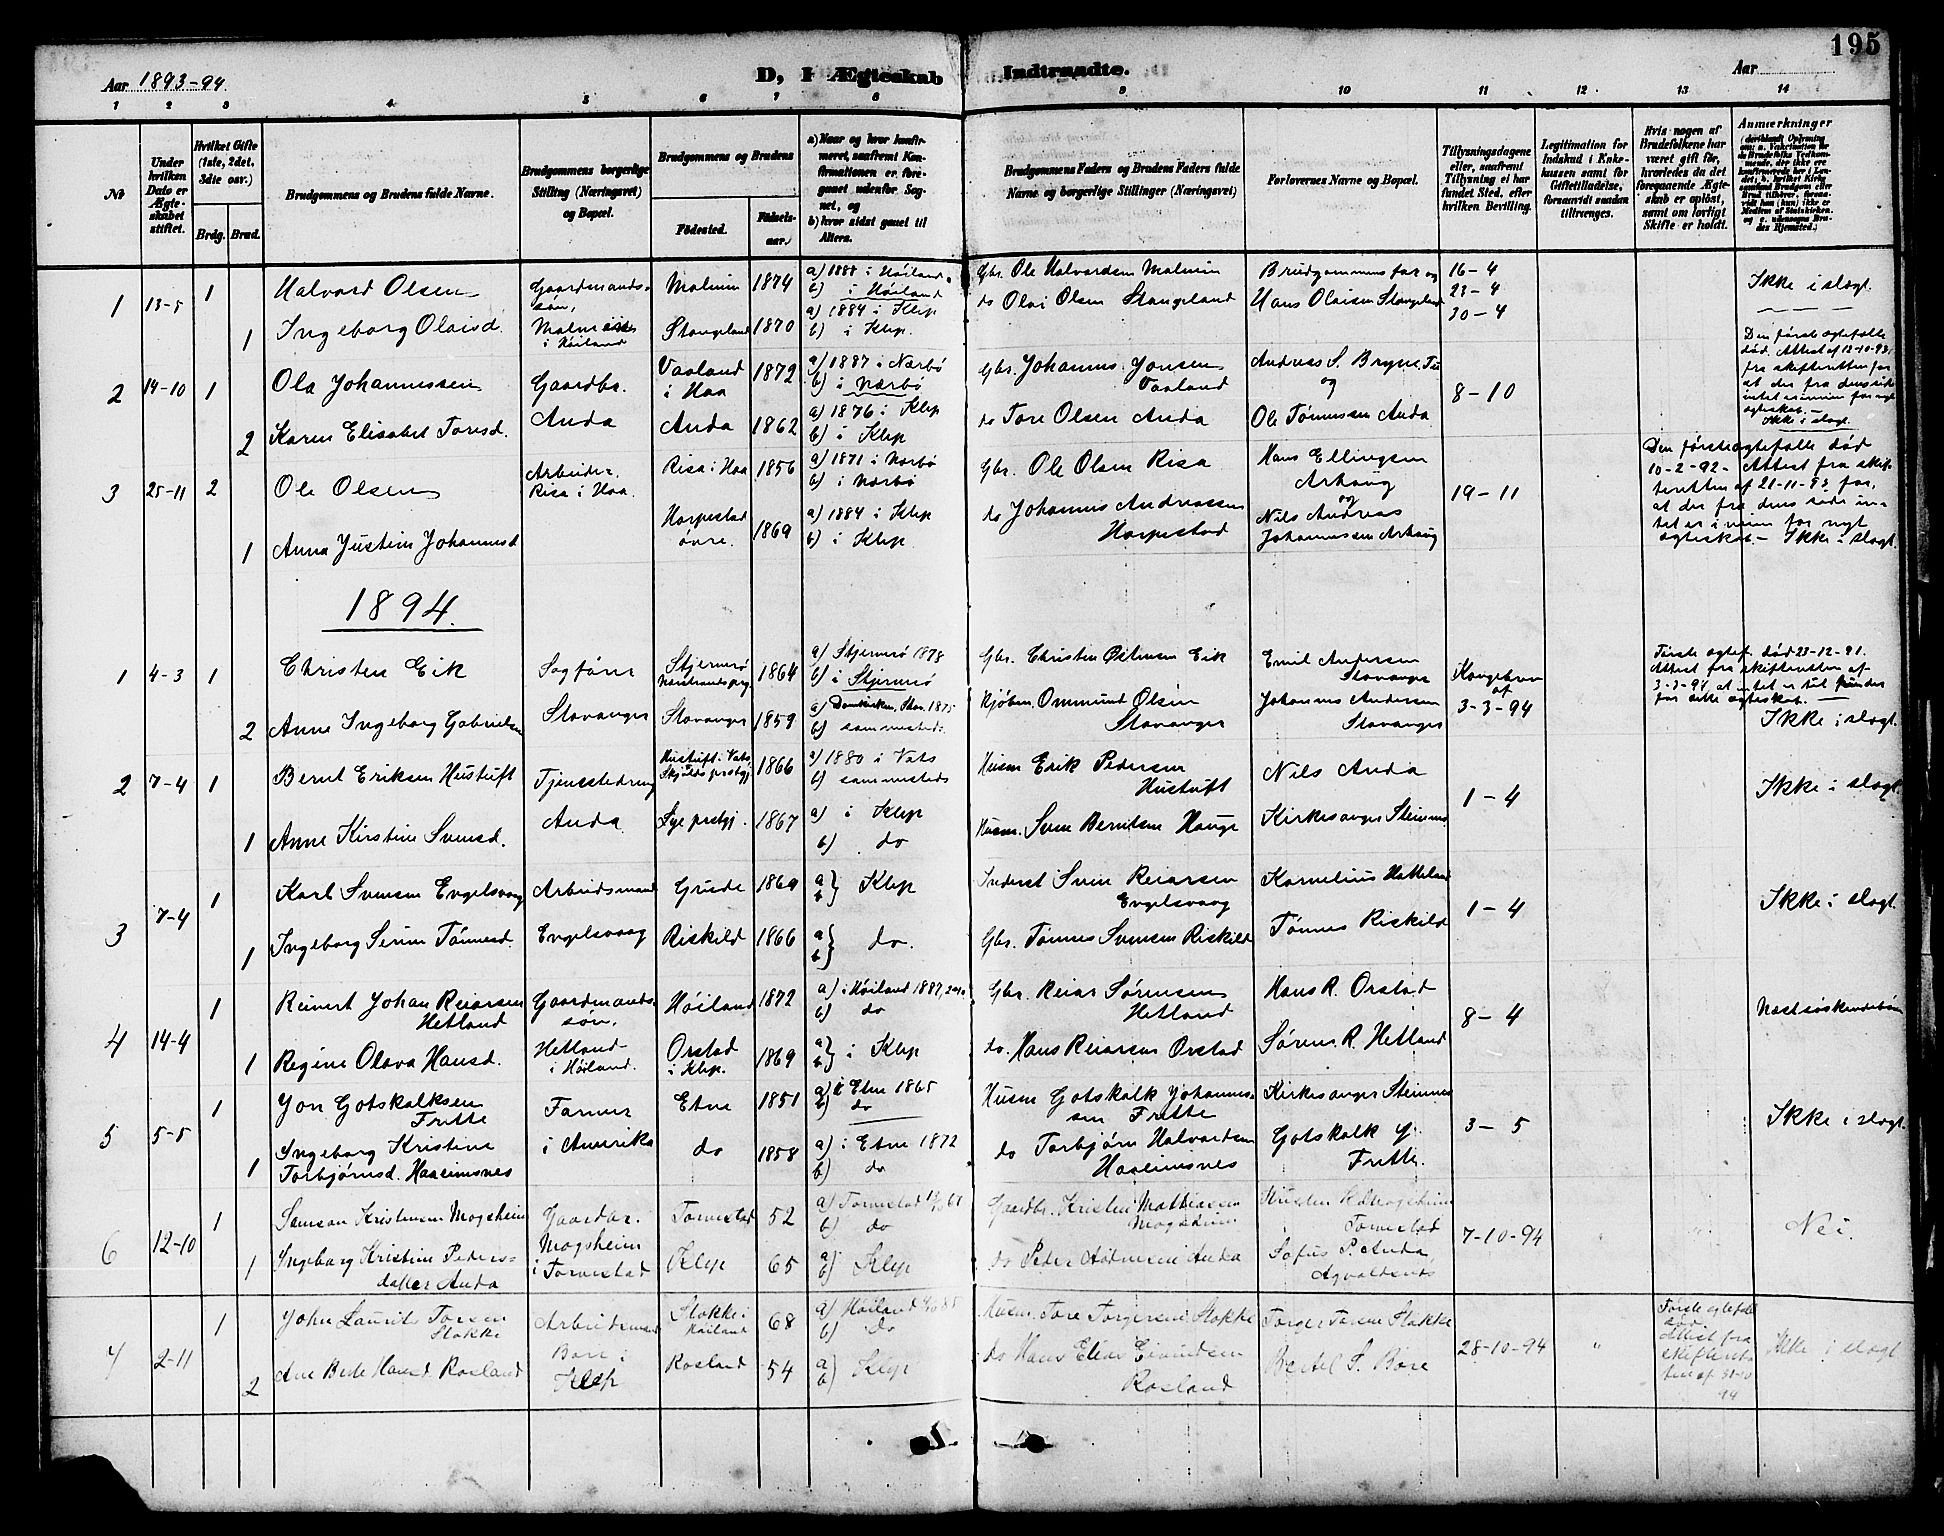 195
Aar 1893-94
D, I Ægteskab Indtraadte.
Aar
1 2 3 4 5 6 7 8 9 10 11 12 13 14
No
Under hvilken Dato er Ægteskabet stiftet.
Hvilket Gifte (1ste, 2det, 3die osv.)
Brdg. Brud.
Brudgommens og Brudens fulde Navne.
Brudgommens borgerlige Stilling (Næringsvei) og Bopæl.
Brudgommens og Brudens
Fødested.
Fødselsaar.
a) Naar og hvor konfirmeret, saafremt Konfirmationen er foregaaet udenfor Sognet, og
b) hvor sidst gaaet til Alters.
Brudgommens Faders og Brudens Faders fulde Navne og borgerlige Stillinger (Næringsvei)
Forlovernes Navne og Bopæl.
Tillysningsdagene eller, saafremt Tillysning ei har fundet Sted, efter hvilken Bevilling.
Legitimation for Indskud i Enkekassen samt for Giftetilladelse, forsaavidt saadan tiltrænges.
Hvis nogen af Brudefolkene har været gift før, hvorledes da det foregaaende Ægteskab er opløst, samt om lovligt Skifte er holdt.
Anmærkninger
1 13-5 1 Halvard Olsen Gaardmandssøn, Malmin 1874 a) 1888 i Høiland b) i Høiland Gbr. Ole Halvardsen Malmin Brudgommens far og 16-4 Ikke i slægt.
1 Ingeborg Olaisd. Malmin i Høiland Stangeland 1870 a) 1884 i Klep b) i Klep. do Olai Olsen Stangeland Hans Olaisen Stangeland 23-4 30-4
2 14-10 1 Ola Johannessen Gaardbr. Vaaland i Haa 1872 a) 1887 i Nærbø b) i Nærbø Gbr. Johannes Jonsen Vaaland Andreas S. Bryne, og 8-10 Den første ægtefælle død. Attest af 12-10-93 fra skifteretten for at der fra dens side intet er i veien for nyt ægteskab. - Ikke i slægt.
2 Karen Elisabet Toresd. Anda Anda 1862 a) 1876 i Klep b) i Klep do Tore Olsen Anda Ole Tønnessen Anda
3 25-11 2 Ole Olsen Arbeider. Risa i Haa. Risa i Haa 1856 a) 1871 i Nærbø b) i Nærbø Gbr. Ole Olsen Risa Hans Ellingsen Arhaug og 19-11 Den første ægtefælle død 10-2-92 - Attest fra skifteretten af 21-11-93 for, at der fra dens side intet er i veien for nyt ægteskab. - Ikke i slægt.
1 Anna Justine Johannesd. Horpestad øvre. 1869 a) 1884 i Klep b) i Klep. do Johannes Andreassen Horpestad Nils Andreas Johannessen Arhaug
1894.
1 4-3 1 Christen Eik Sagfører Stjernerø Nerstrands prg. 1864 a) Stjernerø 1878 b) i Stjernerø Gbr. Christen Osmunsen Eik Emil Andersen Stavanger Kongebrev af 3-3-94 Første ægtef. død 23-12-91. Attest fra skifteretten af 3-3-94, at intet er til hinder for dette ægteskab. Ikke i slægt.
2 Anne Ingeborg Gabrielsen Stavanger Stavanger 1859 a) Domkirken, Stav. 1875 b) sammesteds. Kjøbm. Ommund Olsen Stavanger Johannes Andersen Stavanger
2 7-4 1 Bernt Eriksen Hustuft Tjenestedreng Hustuft i Vats Skjolds prstgj 1866 a) 1880 i Vats b) sammesteds Husm Erik Pedersen Hustuft Nils Anda 1-4 Ikke i slægt.
1 Anne Kirstine Svensd. Anda Lye prstgj. 1867 a) i Klep b) do Husm. Sven Berntsen Hauge Kirkesanger Steinnes
3 7-4 1 Karl Svensen Engelsvaag Arbeidsmand Grude 1869 a b} Klep Inderst Sven Reiarsen Engelsvaag Kornelius Hatteland 1-4 Ikke i slægt.
1 Ingeborg Serine Tønnesd. Engelsvaag Riskild 1866 a b} do. Gbr. Tønnes Svensen Riskild Tønnes Riskild
4 14-4 1 Reinert Johan Reiarsen Hetland Gaardmandssøn. Høiland 1872 a) i Høiland 1887, b) do Gbr. Reiar Sørensen Hetland Hans R. Orstad 8-4 Næstsøskendebørn
1 Regine Olava Hansd. Hetland i Høiland. Orstad i Klep. 1869 a b} i Klep do. Hans Reiarsen Orstad Søren R. Hetland
5 5-5 1 Jon Gotskalksen Frette Farmer Etne 1851 a) i Etne 1865 b) do Husm Gotskalk Johannessen Frette Kirkesanger Steinnes 3-5 Ikke i slægt.
1 Ingeborg Kristine Torbjørnsd. Haaeimsnes i Amerika do 1858 a) i Etne 1872 b) do do Torbjørn Halvardsen Haaeimsnes Gotskalk J. Frette.
6 12-10 1 Samson Kristensen Mogsheim Gaardbr. Torvestad 52 a) Torvestad 67 b) do Gaardbr. Kristen Mathiassen Mogsheim Torvestad 7-10-94 " " Nei.
1 Ingeborg Kristine Pedersdatter Anda Mogsheim i Torvestad Klep 65 a) b) Klep do Peder Anda Sofus P. Anda, Agvaldsnes
7 2-11 1 John Laurits Torsen Stokke Arbeidsmand Stokke i Høiland 68 a) Høiland 85 b) do Husm. Tore Torgersen Stokke Torger Torsen Stokke 28-10-94 " Første ægtefælle død. Attest fra skifteretten af 31-10 94 Ikke i slægt
2 Ane Berte Hansd Rosland Bore i Klep Rosland 54 a) b) Klep do Hans Elias Eivindsen Rosland Bertel S. Bore